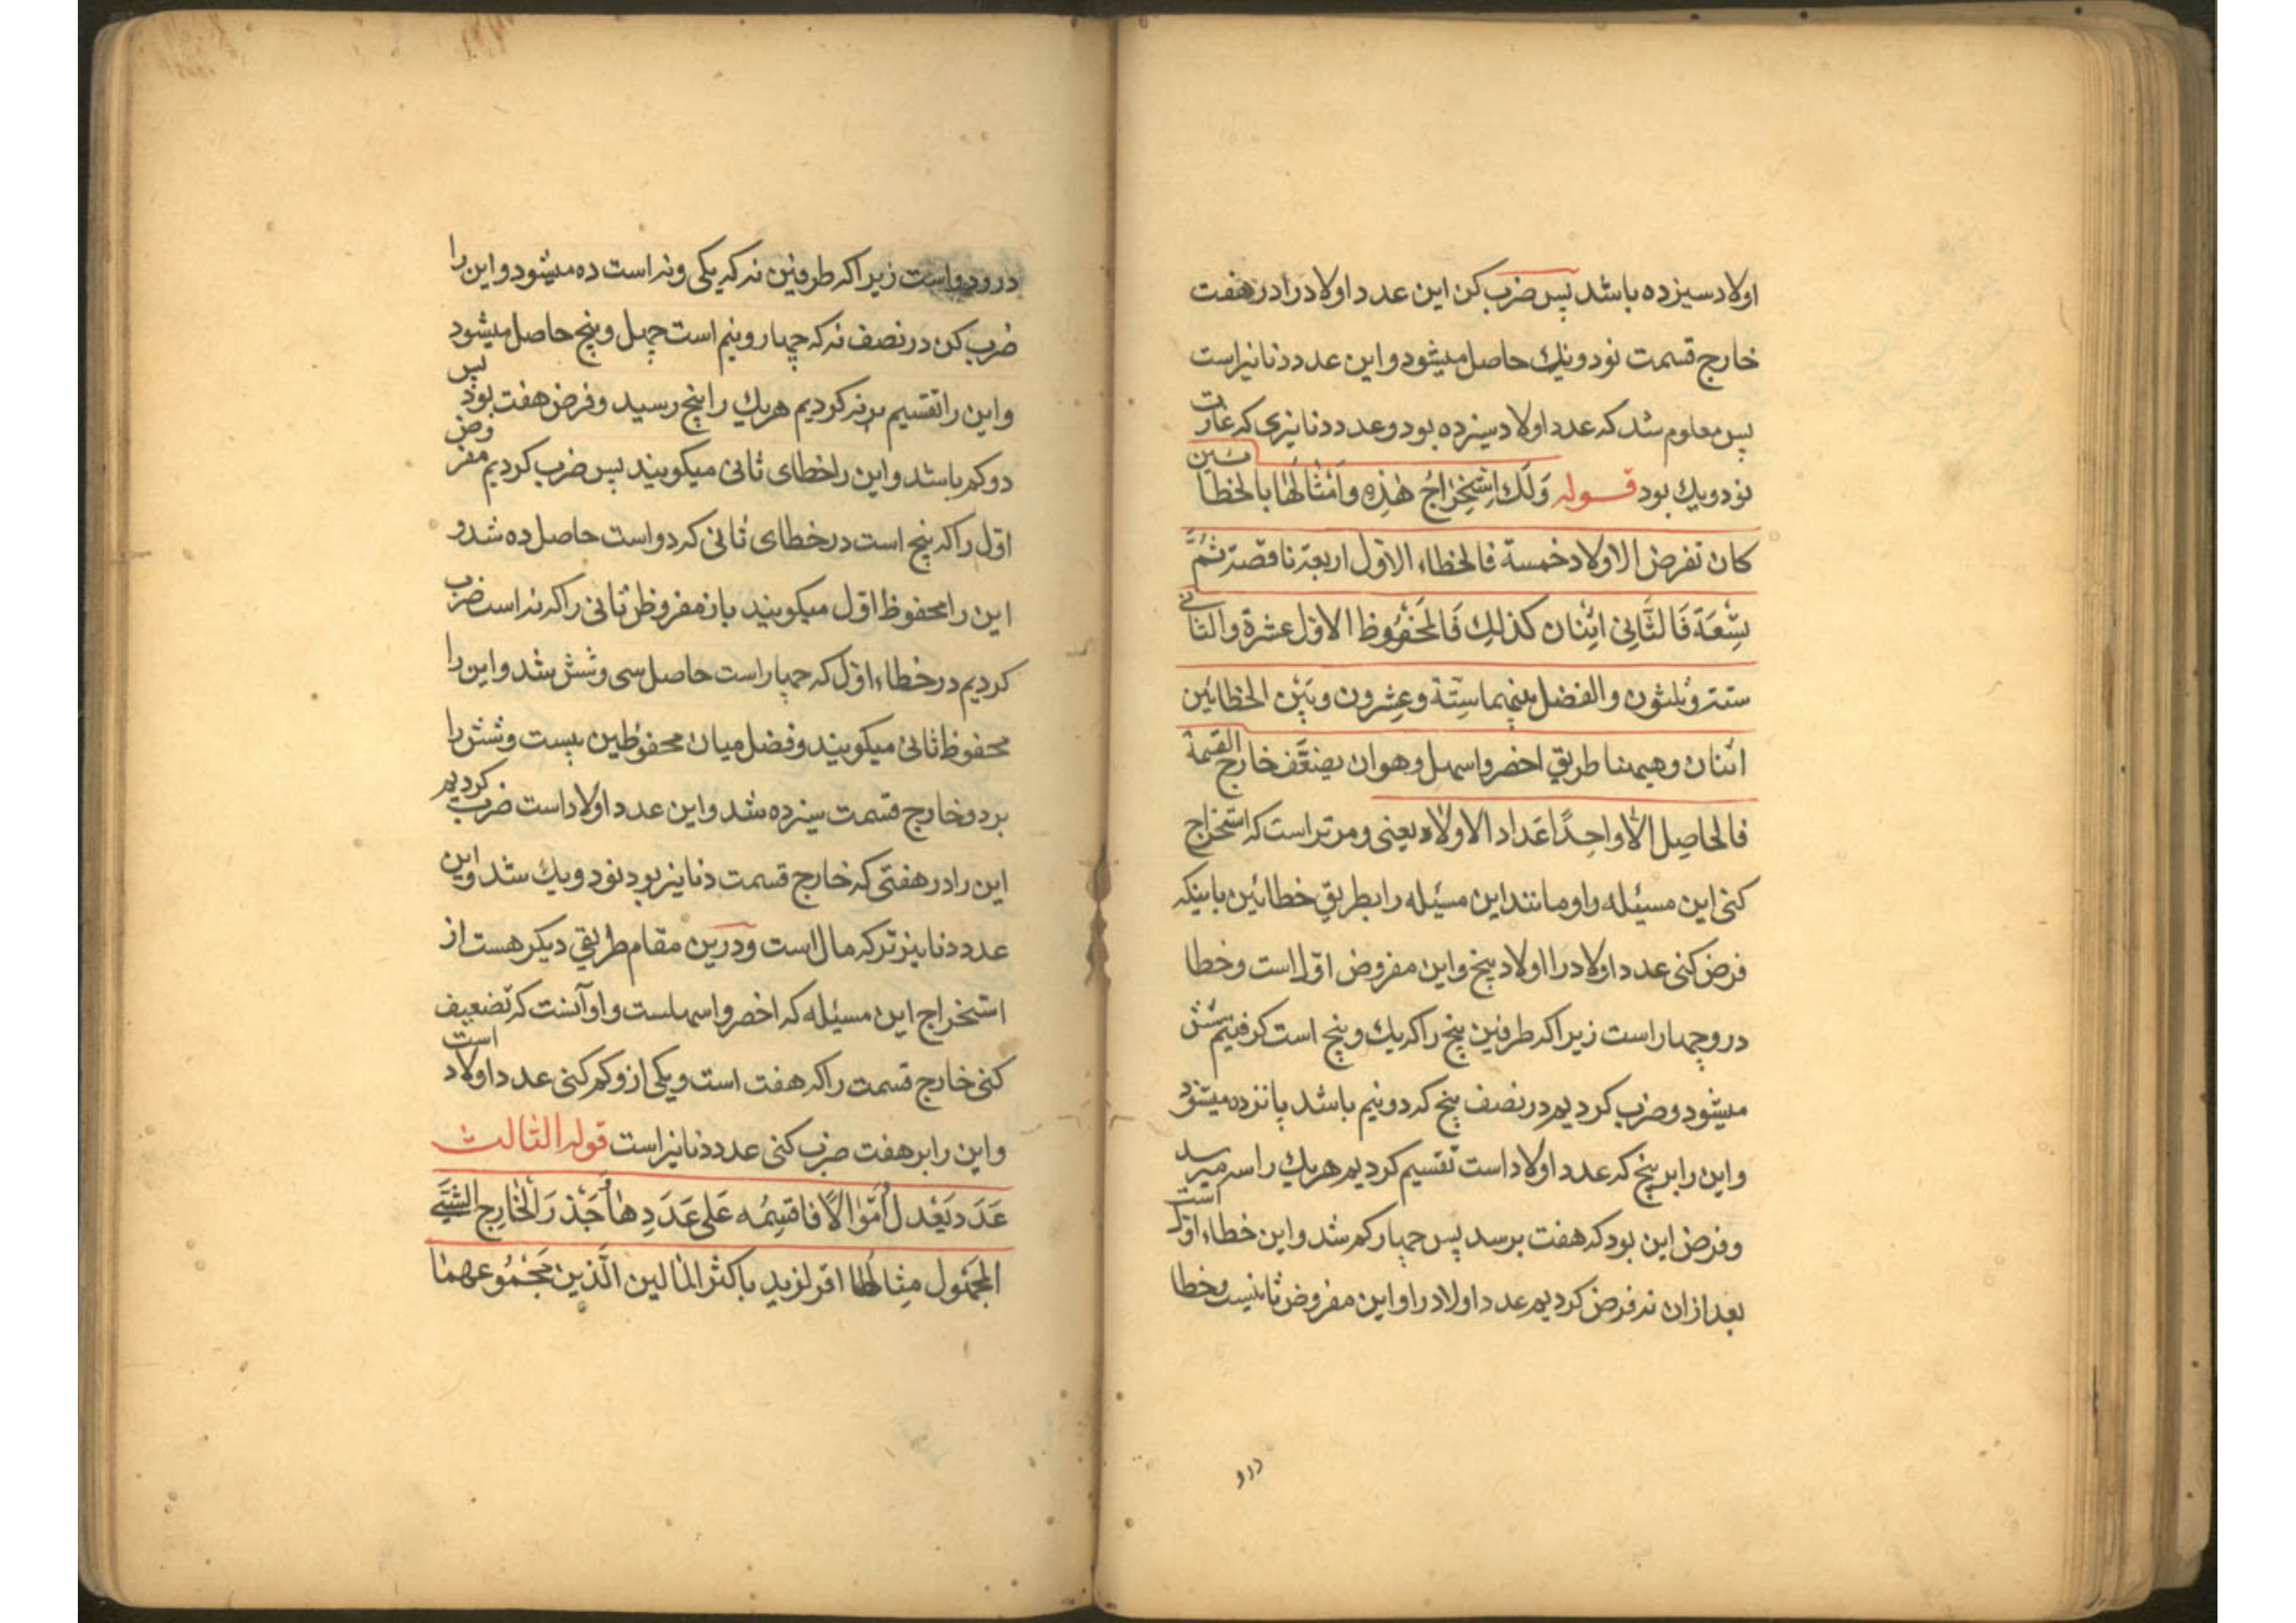 اولاد سیزده باشد پس ضرب کن این عدد اولاد را در هفت
خارج قسمت نود و یک حاصل میشود و این عدد دنانیر است
پس معلوم شد که عدد اولاد سیزده بود و عدد دنانیری که عبارت
نود و یک بود قوله وَلَكَ اسْتِخْرَاجُ هٰذِهِ وَاَمْثَالَهَا بالخطائین
کان تفرض الاولاد خمسة فالخطاء الاول اربعة ناقصة ثُمَّ
تِسْعَةً فَالثَّانِی اثْنان کذلِكَ فَالمَحْفُوظ الاول عشرة والثانی
ستة وثلثون والفضل بینهما سِتَّة وعِشرون وبَیْن الخطائین
اثنان وهیهنا طریق اخصر واسهل وهو ان یضعَّف خارج القسمة
فالحاصِل الّا واحِدًا عَداد الاولاد یعنی و مر تراست که استخراج
کنی این مسئله و او مانند این مسئله را بطریق خطائین باینکه
فرض کنی عدد اولاد را اولاد پنج و این مفروض اول است و خطا
درو چهار است زیرا که طرفین پنج را که یك و پنج است گرفتیم شش
میشود و ضرب کردیم در نصف پنج که دو نیم باشد پانزده میشود
و این را بر پنج که عدد اولاد است تقسیم کردیم هریك را سه میرسد
و فرض این بود که هفت برسد پس چهار کم شد و این خطاء اول است
بعد از ان نه فرض کردیم عدد اولاد را و این مفروض ثانیست و خطا
درو
درو دو است زیرا که طرفین نه که یکی و نه است ده میشود و این را
ضرب کن در نصف نه که چهار و نیم است چهل و پنج حاصل میشود
و این را تقسیم بر نه کردیم هریك را پنج رسید و فرض هفت بود پس
دو کم باشد و این را خطای ثانی میکویند پس ضرب کردیم مفروض
اول را که پنج است در خطای ثانی که دو است حاصل ده شد و
این را محفوظ اول میکویند باز مفروظ ثانی را که نه است ضرب
کردیم در خطاء اول که چهار است حاصل سی و شش شد و این را
محفوظ ثانی میکویند و فضل میان محفوظین بیست و شش را
بر دو خارج قسمت سیزده شد و این عدد اولاد است ضرب کردیم
این را در هفتی که خارج قسمت دنانیر بود نود و یك شد و این
عدد دنانیز ترکه مال است و درین مقام طریق دیکر هست از
استخراج این مسئله که اخصر و اسهلست و او آنست که تضعیف
کنی خارج قسمت را که هفت است و یکی ازو کم کنی عدد اولاد است
و این را بر هفت ضرب کنی عدد دنانیر است قوله الثالث
عَدَد یَعْدل اَمْوالًا فاقسِمُه عَلی عَدَدِها وجَذر الْخَارِج الشَّیْء
المجهول مِثالها اقر لزید باکثر المالین الّذین مَجْمُوعهما